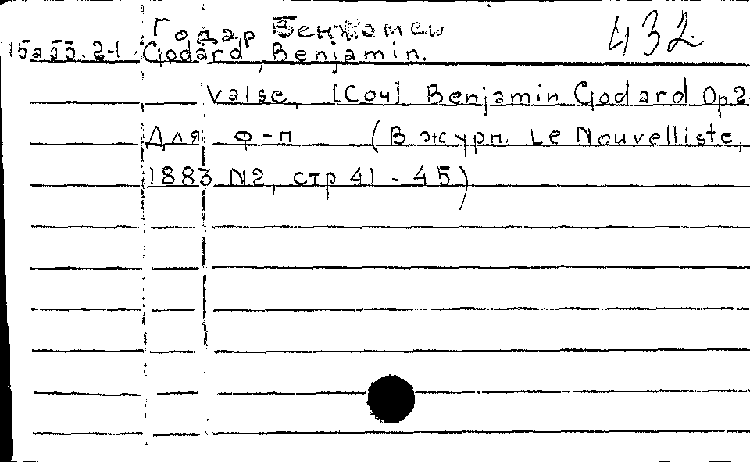 Годар Бенжамен 432
15а53.2-1 Godard, Benjamin.
Valse, [Соч] Benjamin Godard Op2
Для ф-п (В журн. Le Nouvelliste,
1883 N2, стр 41 - 45)